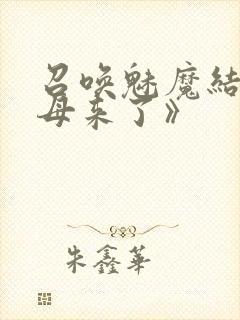 召喚魅魔結
母来了》
朱鑫華